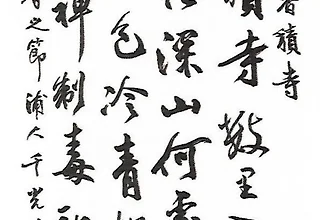 香積寺
積寺數里
深山何處
色冷青
禪制毒
之節浦